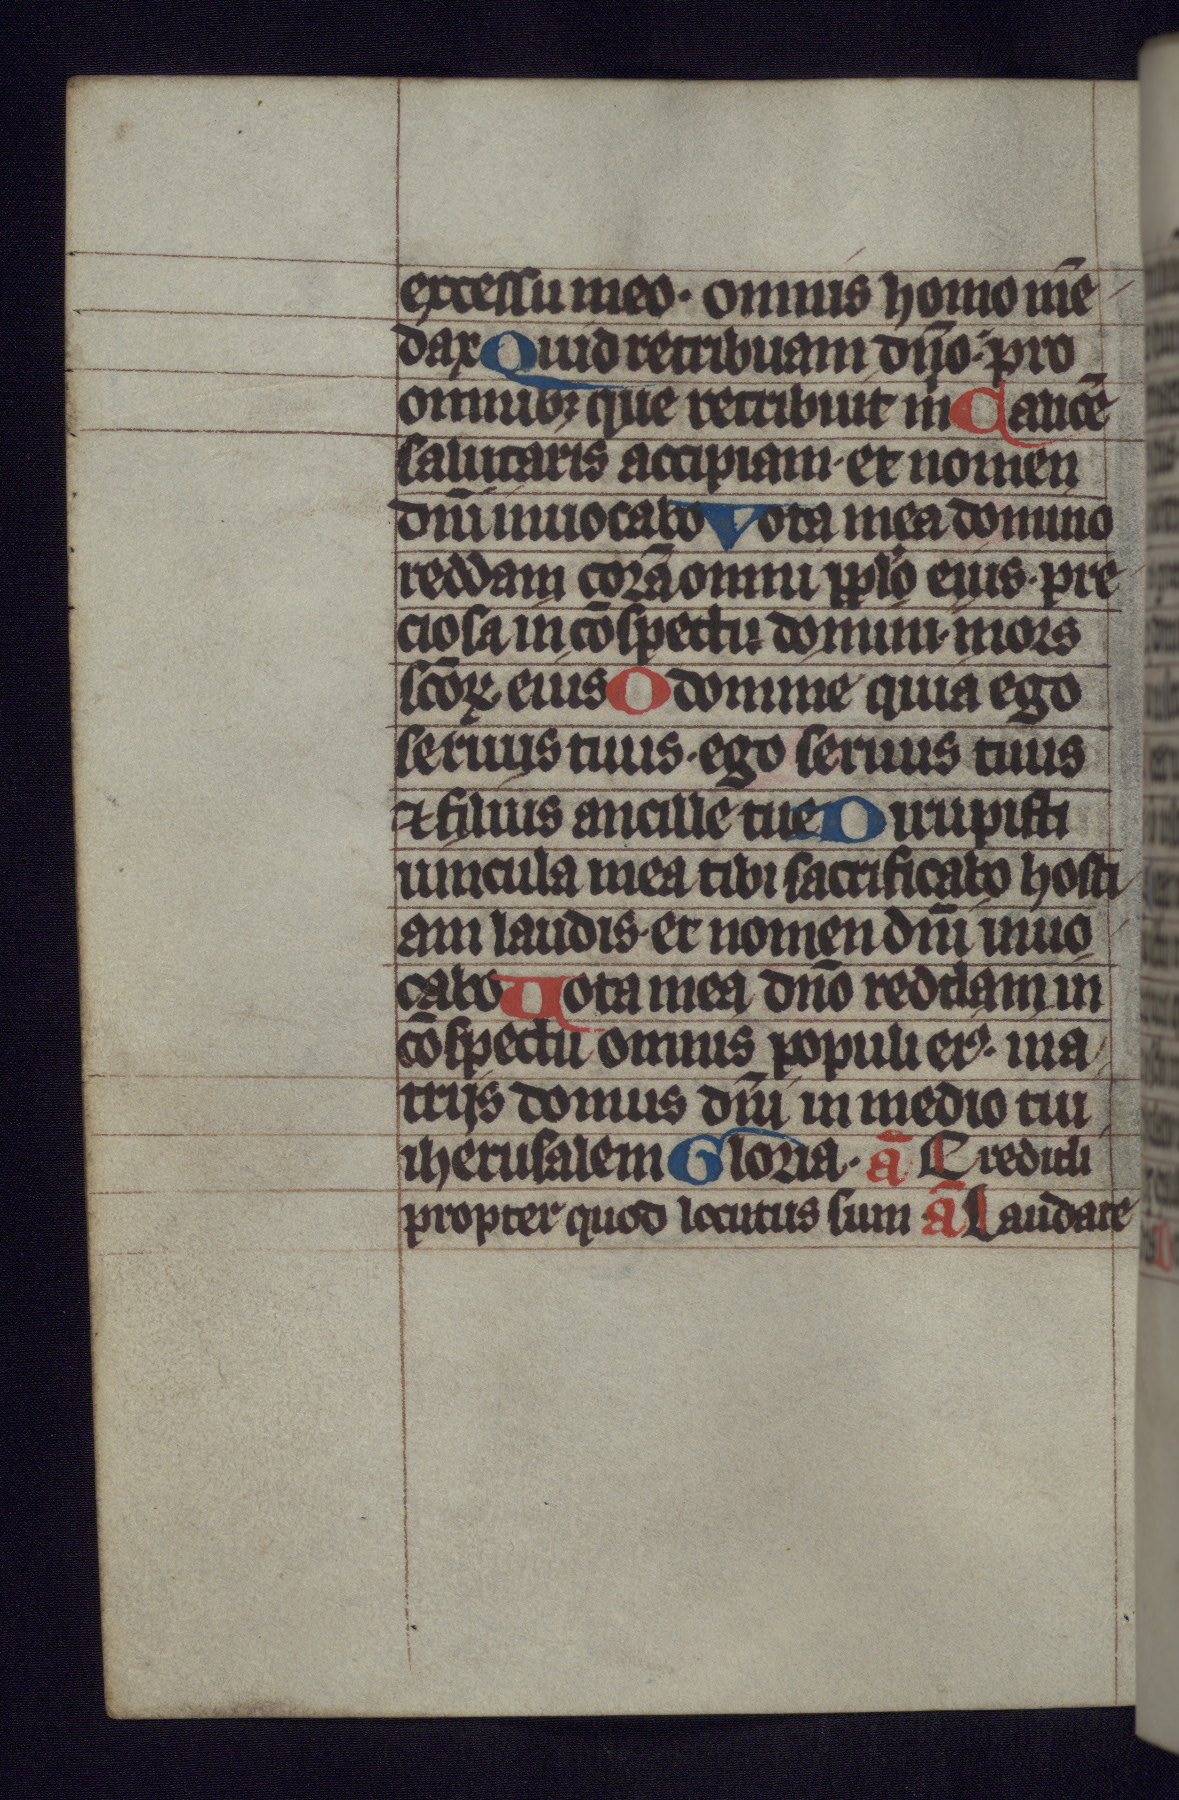 excessu meo · omnis homo mē
dax Quid retribuam dn̄o · pro
omnibꝫ que retribuit m̄ Calicē
salutaris accipiam · et nomen
dn̄i inuocabo Vota mea domino
reddam corā omni pplo eius · pre
ciosa in cōspectu domini · mors
scōꝝ eius O domine quia ego
seruus tuus · ego seruus tuus
⁊ filius ancille tue Dirupisti
uincula mea tibi sacrificabo hosti
am laudis · et nomen dn̄i inuo
cabo Uota mea dn̄o reddam in
cōspectu omnis populi eiꝰ · in a
trijs domus dn̄i in medio tui
iherusalem Gloria · ā Credidi
propter quod locutus sum ā Laudate